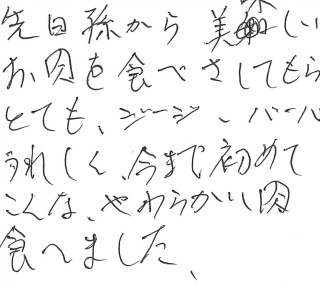 先日孫から美味しい
お肉を食べさしてもら
とても、ジージ、バーバ
うれしく、今まで初めて
こんな、やわらかい肉
食べました、